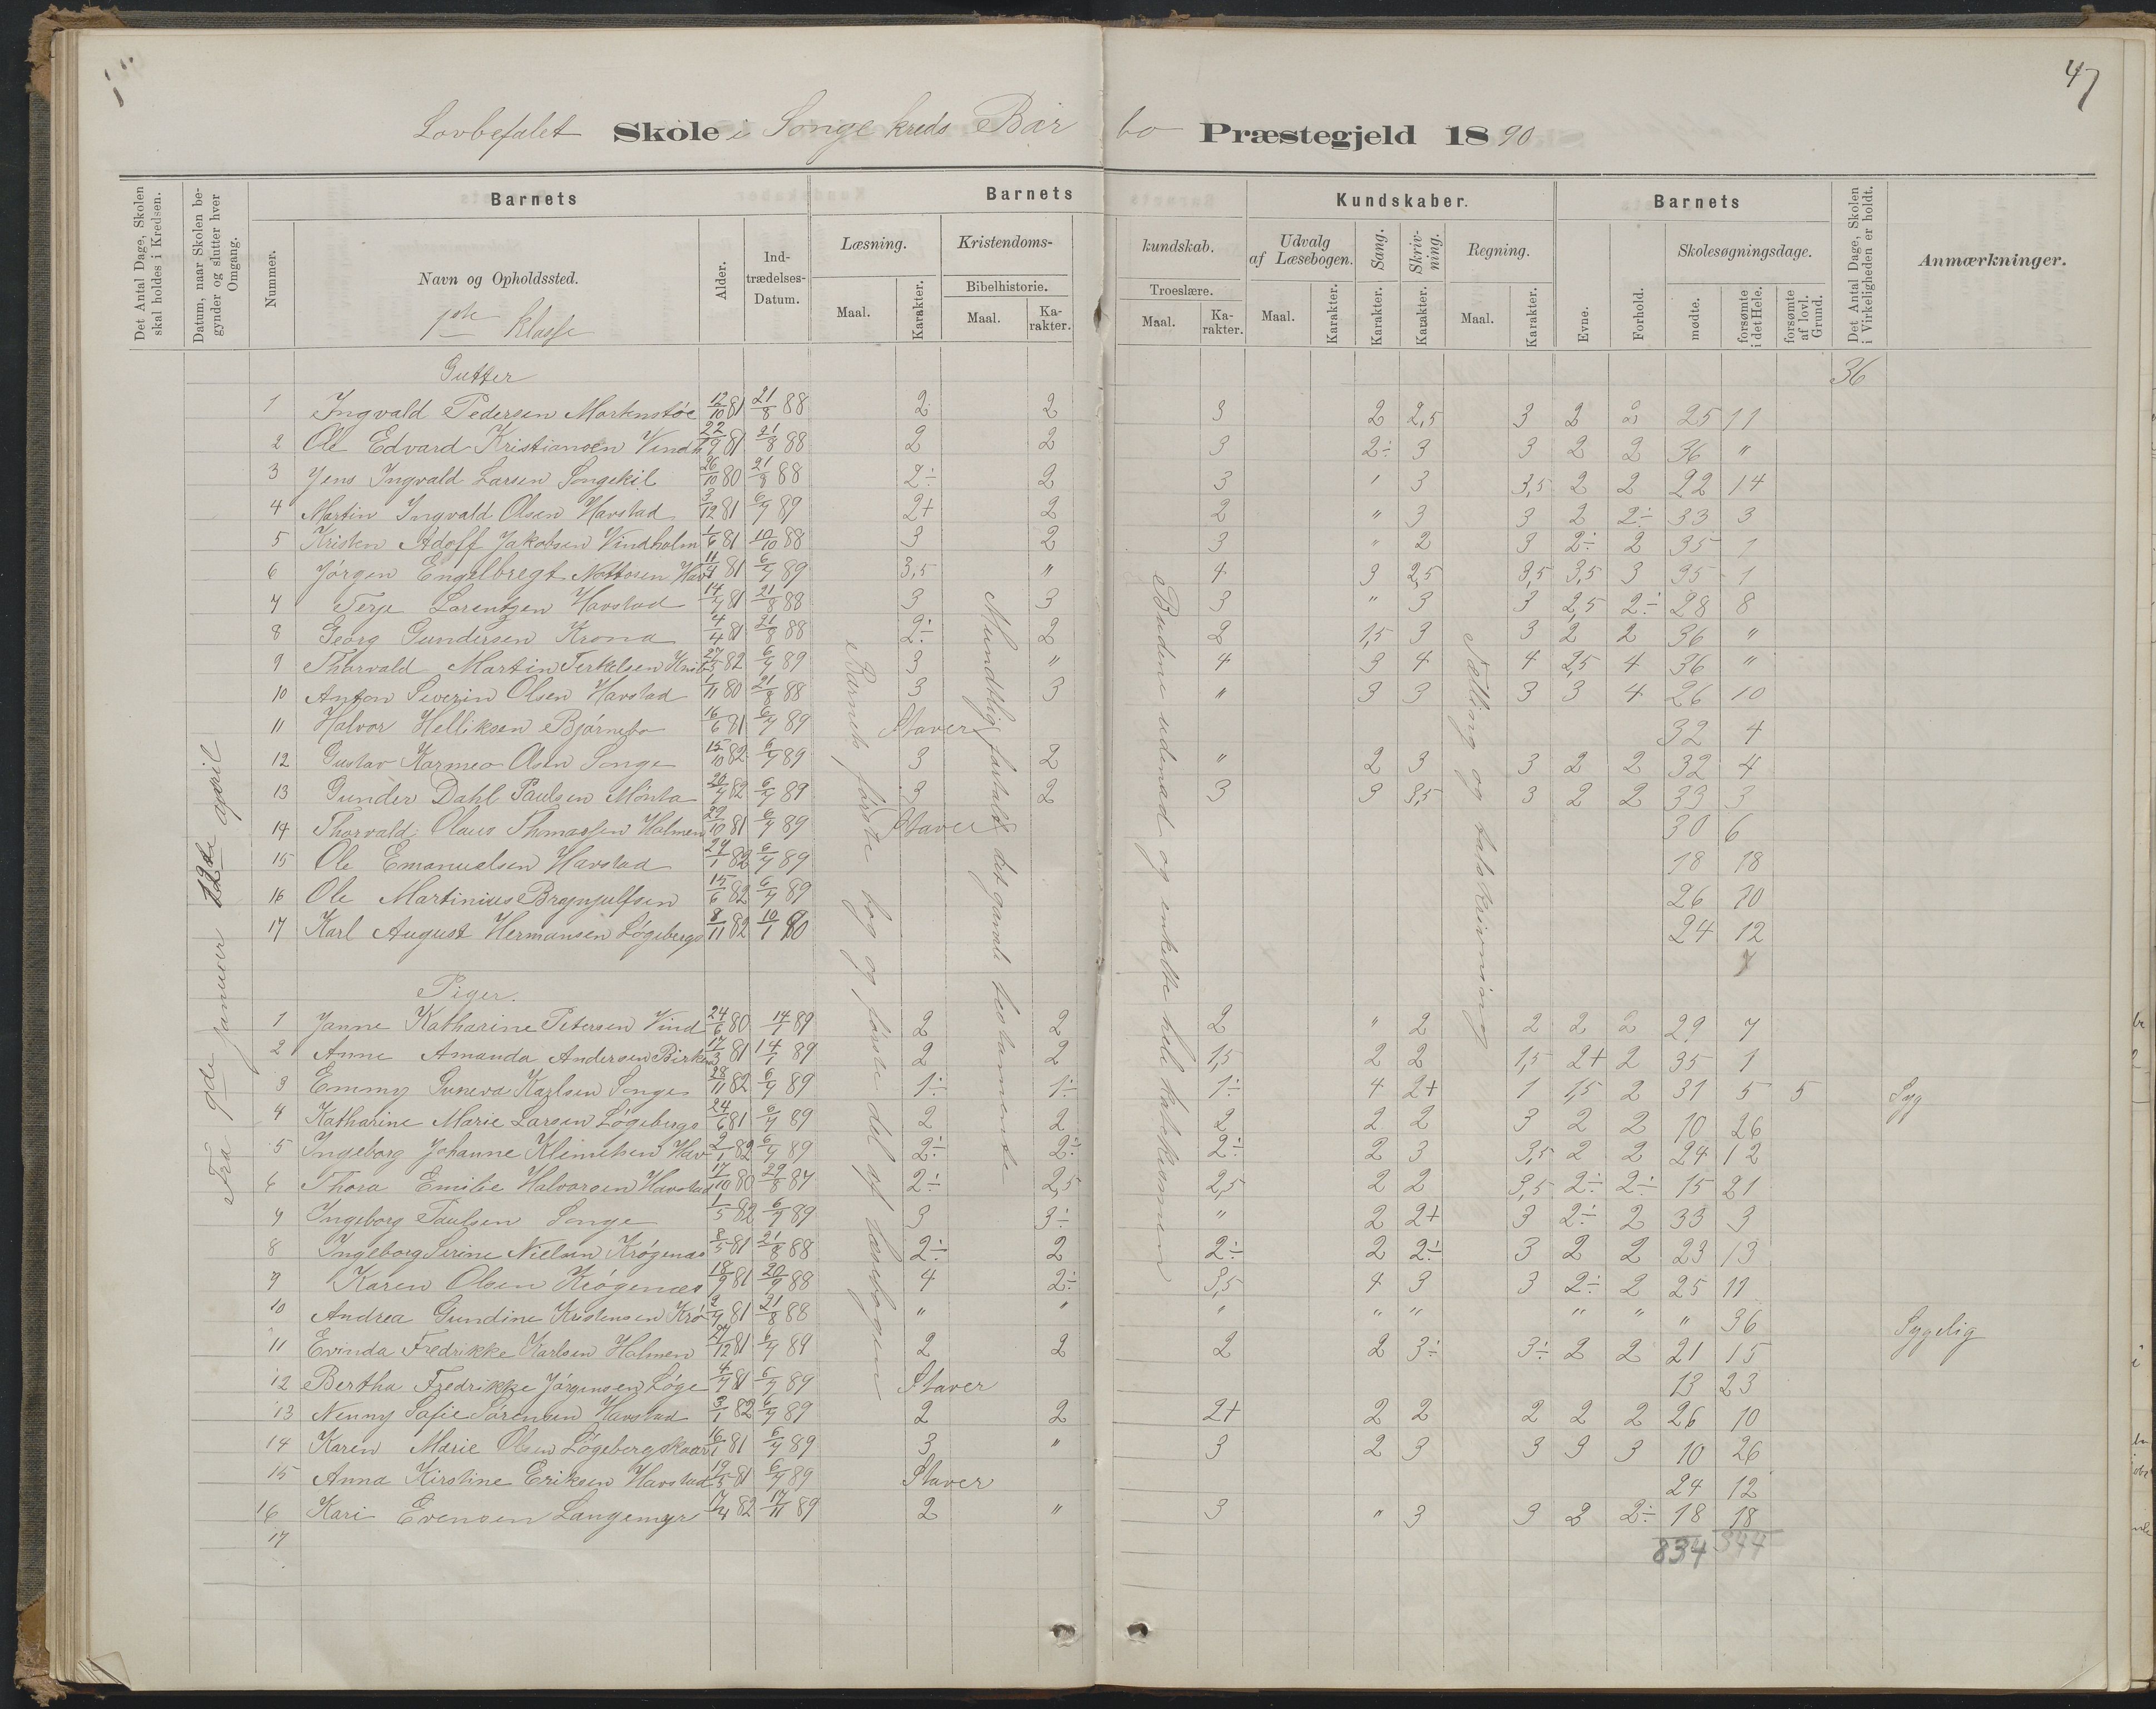 47
Lovbefalet Skole i Songe kreds Bar bo Præstegjeld 1890
Det Antal Dage, Skolen skal holdes i Kredsen.
Datum, naar Skolen begynder og slutter hver Omgang.
Barnets
Nummer.
Navn og Opholdssted.
1ste klasse
Alder.
Ind-
trædelses-
Datum.
Barnets
Læsning.
Maal.
Karakter.
Kristendoms-
Bibelhistorie.
Maal.
Ka-
rakter.
kundskab.
Troeslære.
Maal.
Ka-
rakter.
Kundskaber.
Udvalg
af Læsebogen.
Maal.
Karakter.
Sang.
Karakter.
Skriv-
ning.
Karakter.
Regning.
Maal.
Karakter.
Barnets
Evne.
Forhold.
Skolesøgningsdage.
mødte.
forsømte
i det Hele.
forsømte
af lovl.
Grund.
Det Antal Dage, Skolen
i Virkeligheden er holdt.
Anmærkninger.
Fra 9de januar 12te april
Barnets første bog og første del af læsebogen
Mundtlig fortalt det gamle testamente
Budene udenad og enkelte hele katekismen
Tælling og talskrivning
36
Gutter
1 Ingvald Pedersen Martenstøe 12/10 81 21/8 88 2 2 3 2 2,5 3 2 2 25 11
2 Ole Edvard Kristiansen Vindh 22/9 81 21/8 88 2 2 3 2÷ 3 3 2 2 36 "
3 Jens Ingvald Larsen Songekil 26/10 80 21/8 88 2÷ 2 3 1 3 3,5 2 2 22 14
4 Martin Ingvald Olsen Havstad 3/12 81 6/4 89 2+ 2 2 " 3 3 2 2÷ 33 3
5 Kristen Adolf Jakobsen Vindholm 1/6 81 10/10 88 3 2 3 " 2 3 2÷ 2 35 1
6 Jørgen Engelbregt Nottosen Hav 11/4 81 6/4 89 3,5 " 4 3 2,5 3,5 3,5 3 35 1
7 Terje Larentzen Havstad 14/4 81 21/8 88 3 3 3 " 3 3 2,5 2÷ 28 8
8 Georg Gundersen Krona 4/4 81 21/8 88 2÷ 2 2 1,5 3 3 2 2 36 "
9 Thorvald Martin Terkelsen 27/3 82 6/4 89 3 " 4 3 4 4 2,5 4 36 "
10 Anton Severin Olsen Havstad 1/11 80 21/8 88 3 3 " 3 3 3 3 4 26 10
11 Halvor Helliksen Bjørnebo 16/6 81 6/4 89 Staver 32 4
12 Gustav Karmeo Olsen Songe 15/10 82 6/4 89 3 2 " 2 3 3 2 2 32 4
13 Gunder Dahl Paulsen Mønta 20/4 82 6/4 89 3 2 3 3 3,5 3 2 2 33 3
14 Thorvald Olaus Thomassen Holmen 22/10 81 6/4 89 Staver 30 6
15 Ole Emanuelsen Havstad 29/1 82 6/4 89 18 18
16 Ole Martinius Brynjulfsen 15/6 82 6/4 89 26 10
17 Karl August Hermansen Løgebergs 8/11 82 10/1 90 24 12
Piger.
1 Janne Katharine Petersen Vind 24/6 80 14/1 89 2 2 2 " 2 2 2 2 29 7
2 Anne Amanda Andersen Birken 17/3 81 14/1 89 2 2 1,5 2 2 1,5 2+ 2 35 1
3 Emmy Suneva Karlsen Songe 28/11 82 6/4 89 1÷ 1÷ 1÷ 4 2+ 1 1,5 2 31 5 5 Syg
4 Katharine Marie Larsen Løgebergs 24/6 81 6/4 89 2 2 2 2 2 3 2 2 10 26
5 Ingeborg Johanne Klimetsen Hav 2/1 82 6/4 89 2÷ 2÷ 2÷ 2 3 3,5 2 2 24 12
6 Thora Emilie Halvorsen Havstad 17/10 80 29/8 87 2÷ 2,5 2,5 2 2 3,5 2÷ 2÷ 15 21
7 Ingeborg Paulsen Songe 1/5 82 6/4 89 3 3÷ " 2 2+ 3 2÷ 2 33 3
8 Ingeborg Serine Nielsen Krøgenæs 8/5 81 21/8 88 2÷ 2 2÷ 2 2÷ 3 2 2 23 13
9 Karen Olsen Krøgenæs 18/9 81 20/9 88 4 2÷ 3,5 4 3 3 2÷ 2 25 11
10 Andrea Gundine Kristensen Krø 2/4 81 21/8 88 " " " " " " " " 36 Sygelig
11 Evinda Fredrikke Karlsen Holmen 27/12 81 6/4 89 2 2 2 2 3÷ 3÷ 2 2 21 15
12 Bertha Fredrikke Jørgensen Løge 4/4 81 6/4 89 Staver 13 23
13 Nenny Sofie Sørensen Havstad 3/1 82 6/4 89 2 2 2+ 2 2 2 2 2 26 10
14 Karen Marie Olsen Løgebergskaar 16/1 81 6/4 89 3 " 3 2 3 3 3 3 10 26
15 Anna Kirstine Eriksen Havstad 19/5 81 6/4 89 Staver 24 12
16 Kari Evensen Langemyr 7/4 82 17/11 89 2 " 3 " 3 3 2 2÷ 18 18
17
834 344